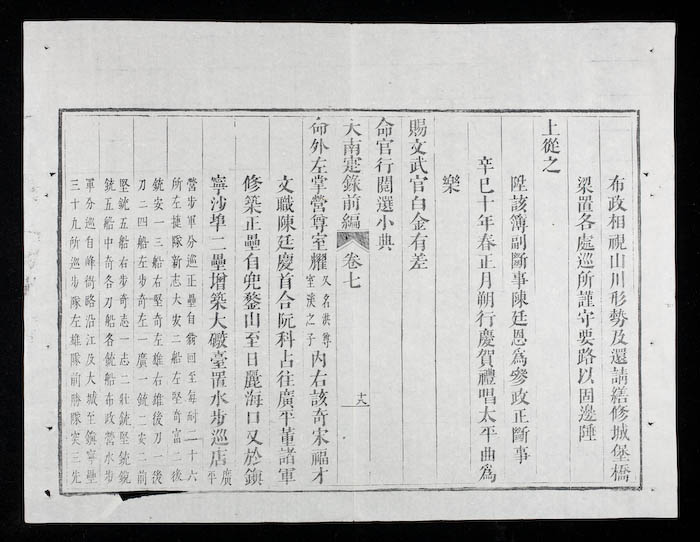 布政相視山川形勢及還請繕修城堡橋
梁置各處巡所謹守要路以固邊陲
上從之
陞該簿副斷事陳廷恩為參政正斷事
辛巳十年春正月朔行慶賀禮唱太平曲為
樂
賜文武官白金有差
命官行閱選小典
大南寔錄前編 卷七 十六
命外左掌營尊室耀又名洪尊室漢之子內右該奇宋福才
文職陳廷慶首合阮科占往廣平董諸軍
修築正壘自兜鍪山至日麗海口又於鎮
寧沙埠二壘增築大礮臺置水步巡店廣平
營步軍分巡正壘自翁回至每耐一十六
所左捷隊新志大安二船左堅奇富二後
銃安一三船右堅奇左雄右雄後刀一後
刀二四船左步奇左一廣一銃二安二前
堅銃五船右步奇志一志二壯銃堅銃銳
銃五船中奇各刀船各銃船布政營水步
軍分巡自峰衕路沿江及大城至鎮寧壘
三十九所巡步隊左雄隊前勝隊安三先